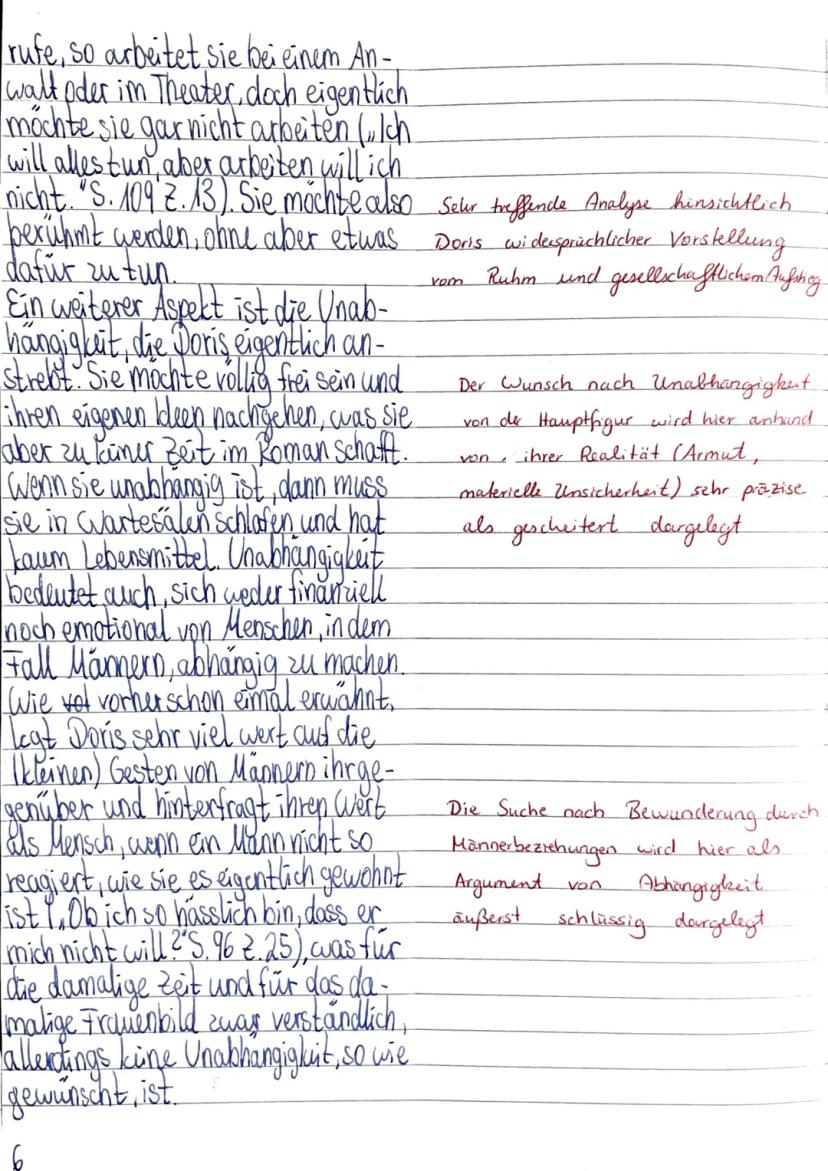 rufe, so arbeitet sie bei einem An-
walt oder im Theater, doch eigentlich
möchte sie gar nicht arbeiten („Ich
will alles tun, aber arbeiten will ich
nicht." S. 109 Z. 13). Sie möchte also
berühmt werden, ohne aber etwas
dafür zu tun.
Ein weiterer Aspekt ist die Unab-
hängigkeit, die Doris eigentlich an-
strebt. Sie möchte völlig frei sein und
ihren eigenen Ideen nachgehen, was sie
aber zu keiner Zeit im Roman schafft.
Wenn sie unabhängig ist, dann muss
sie in Wartesälen schlafen und hat
kaum Lebensmittel. Unabhängigkeit
bedeutet auch, sich weder finanziell
noch emotional von Menschen, in dem
Fall Männern, abhängig zu machen.
Wie vorher schon eimal erwähnt,
legt Doris sehr viel wert auf die
(kleinen) Gesten von Männern ihr ge-
genüber und hinterfragt ihren Wert
als Mensch, wenn ein Mann nicht so
reagiert, wie sie es eigentlich gewohnt
ist („Ob ich so hässlich bin, dass er
mich nicht will?" S. 96 Z. 25), was für
die damalige Zeit und für das da-
malige Frauenbild zwar verständlich,
allerdings keine Unabhängigkeit, so wie
gewünscht, ist.
6
Sehr treffende Analyse hinsichtlich
Doris widersprüchlicher Vorstellung
vom Ruhm und gesellschaftlichem Aufstieg
Der Wunsch nach Unabhängigkeit
von der Hauptfigur wird hier anhand
von ihrer Realität (Armut,
materielle Unsicherheit) sehr präzise
als gescheitert dargelegt
Die Suche nach Bewunderung durch
Männerbeziehungen wird hier als
Argument von Abhängigkeit
äußerst schlüssig dargelegt